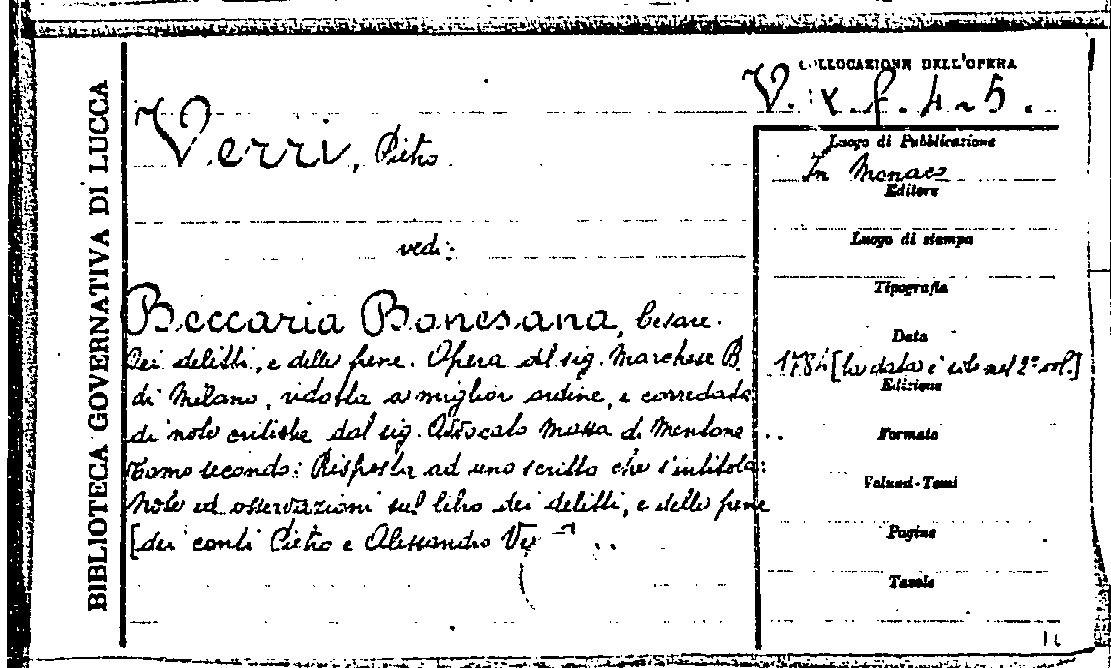 BIBLIOTECA GOVERNATIVA DI LUCCA
COLLOCAZIONE DELL'OPERA
V. x. f. 4-5.
Verri, Pietro
vedi:
Beccaria Bonesana, Cesare.
Dei delitti, e delle pene. Opera del sig. Marchese B.
di Milano, ridotta a miglior ordine, e corredata
di note critiche dal sig. Avvocato Massa di Mentone ..
Tomo secondo: Risposta ad uno scritto che s'intitola:
Note ed osservazioni sul libro dei delitti, e delle pene
[dei conti Pietro e Alessandro
Luogo di Pubblicazione
In Monaco
Editore
Luogo di stampa
Tipografia
Data
1784 [la data è solo nel 2° vol.]
Edizione
Formato
Volumi-Tomi
Pagine
Tavole